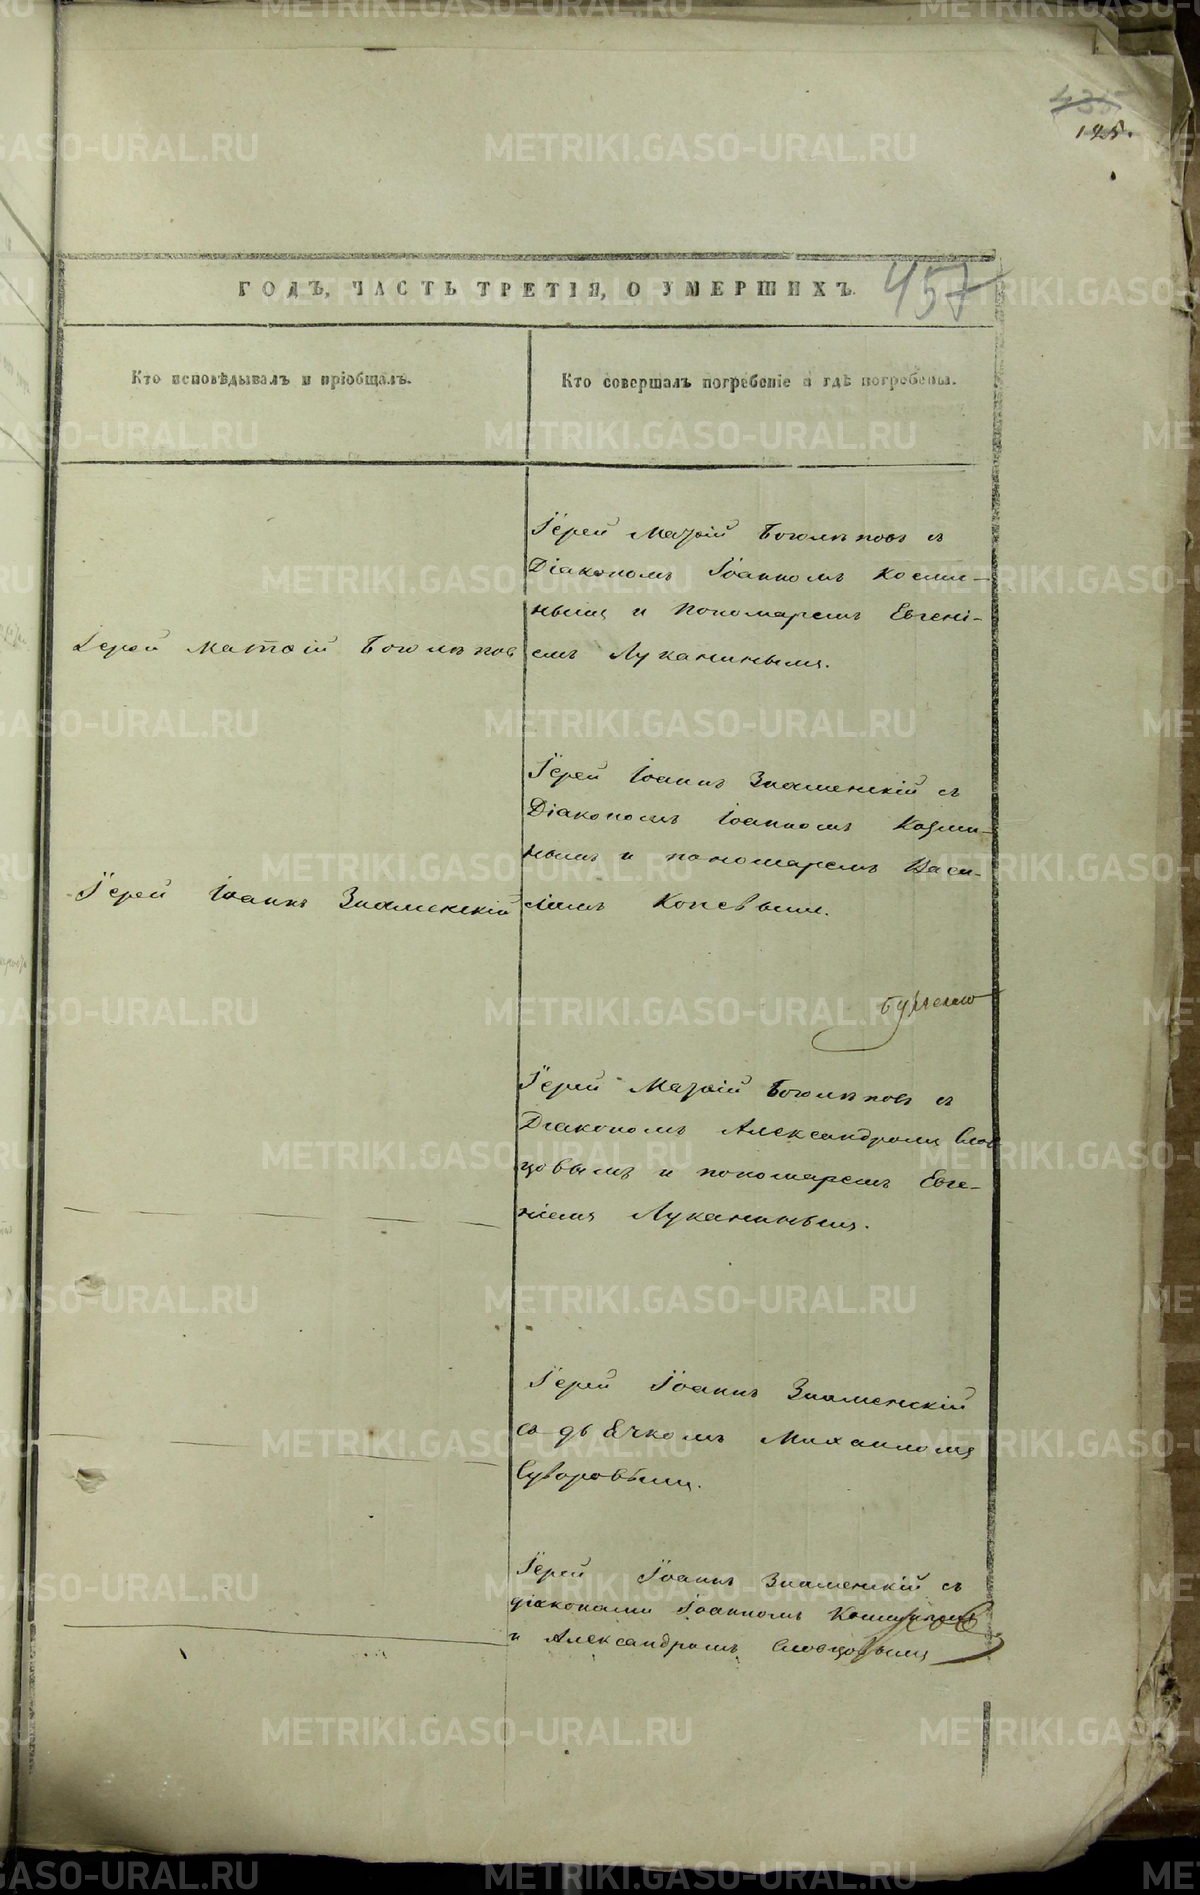 435
125.
ГОДЪ, ЧАСТЬ ТРЕТІЯ, О УМЕРШИХЪ.
457
Кто исповѣдывалъ и пріобщалъ.
Кто совершалъ погребеніе и гдѣ погребены.
Іерей Матѳій Боголѣповъ
Іерей Матѳій Боголѣповъ съ
Діакономъ Іоанномъ Косми-
нымъ и пономаремъ Евгені-
емъ Луканинымъ.
Іерей Іоаннъ Знаменскій
Іерей Іоаннъ Знаменскій съ
Діакономъ Іоанномъ Козми-
нымъ и пономаремъ Васи-
ліемъ
Іерей Матѳій Боголѣповъ съ
Діакономъ Александромъ Слов
цовымъ и пономаремъ Евге-
ніемъ Луканинымъ.
Іерей Іоаннъ Знаменскій
съ дьячкомъ Михаиломъ
Суворовымъ.
Іерей Іоаннъ Знаменскій съ
діаконами Іоанномъ
и Александромъ Словцовымъ
METRIKI.GASO-URAL.RU